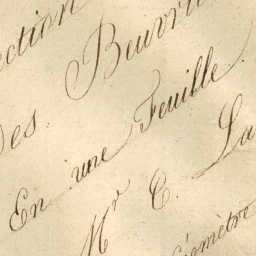 ection
Des Beuvri
En une Feuille.
Mr C. La
éomètre